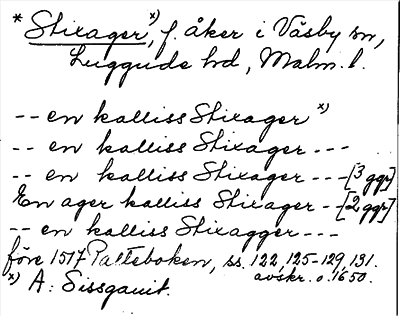 * Stixager, *) f. åker i Väsby sn,
Luggude hd, Malm. l.
-- en kalliss Stixager *)
-- en kalliss Stixager ---
-- en kalliss Stixager --- [3 ggr]
En ager kalliss Stixager -- [2 ggr]
-- en kalliss Stixagger ---
före 1517 Palteboken, ss. 122, 125-129, 131.
avskr. o. 1650.
*) A: Sissgauit.